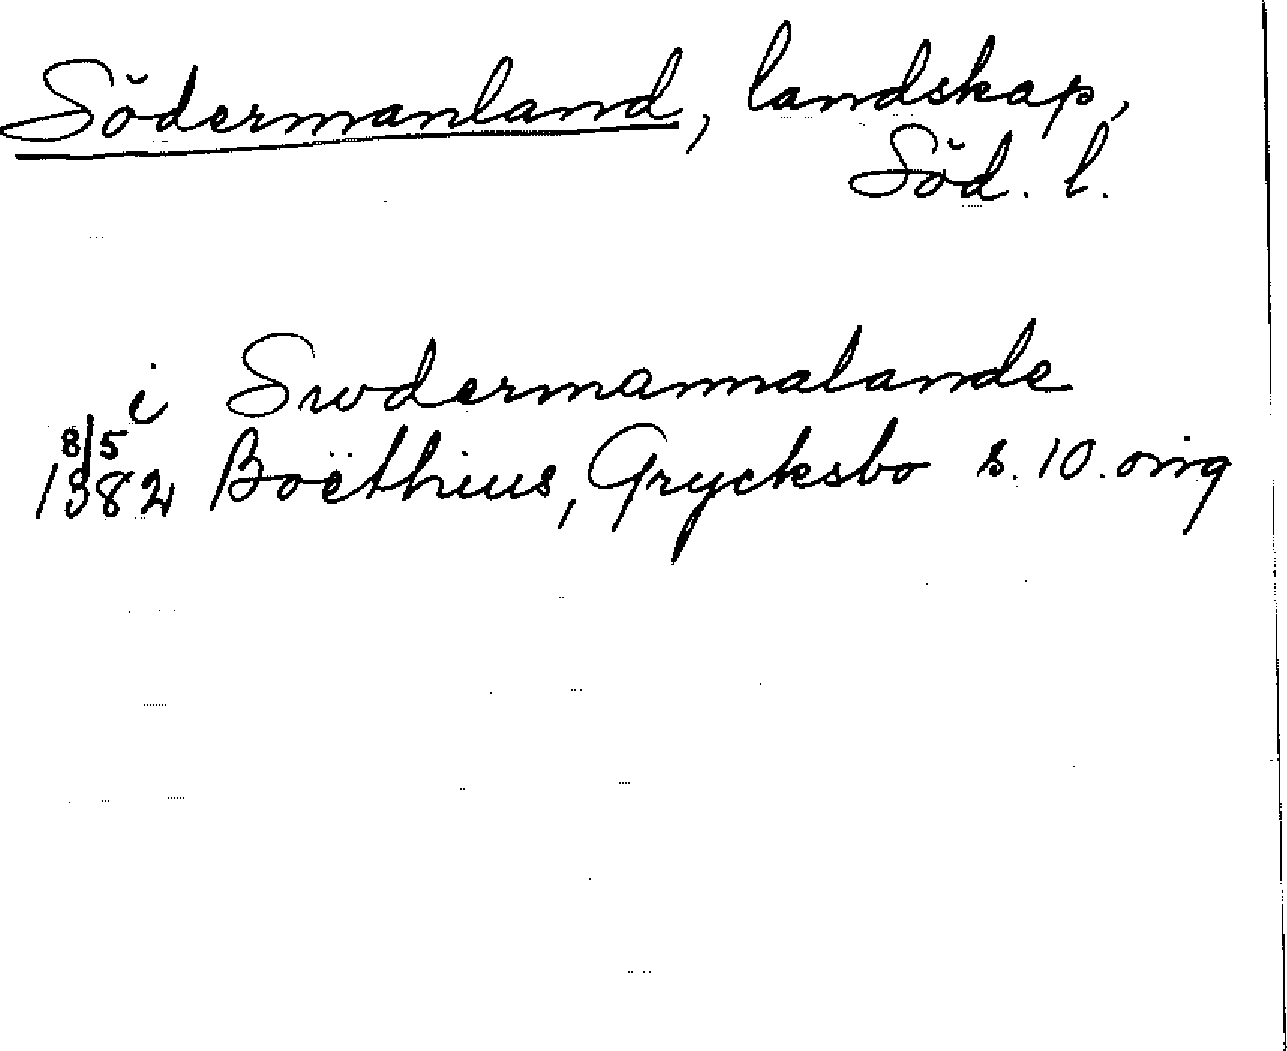 Södermanland, landskap,
Söd. l.
i Swdermannalande
8/5
1382 Boëthius, Grycksbo s. 10. orig